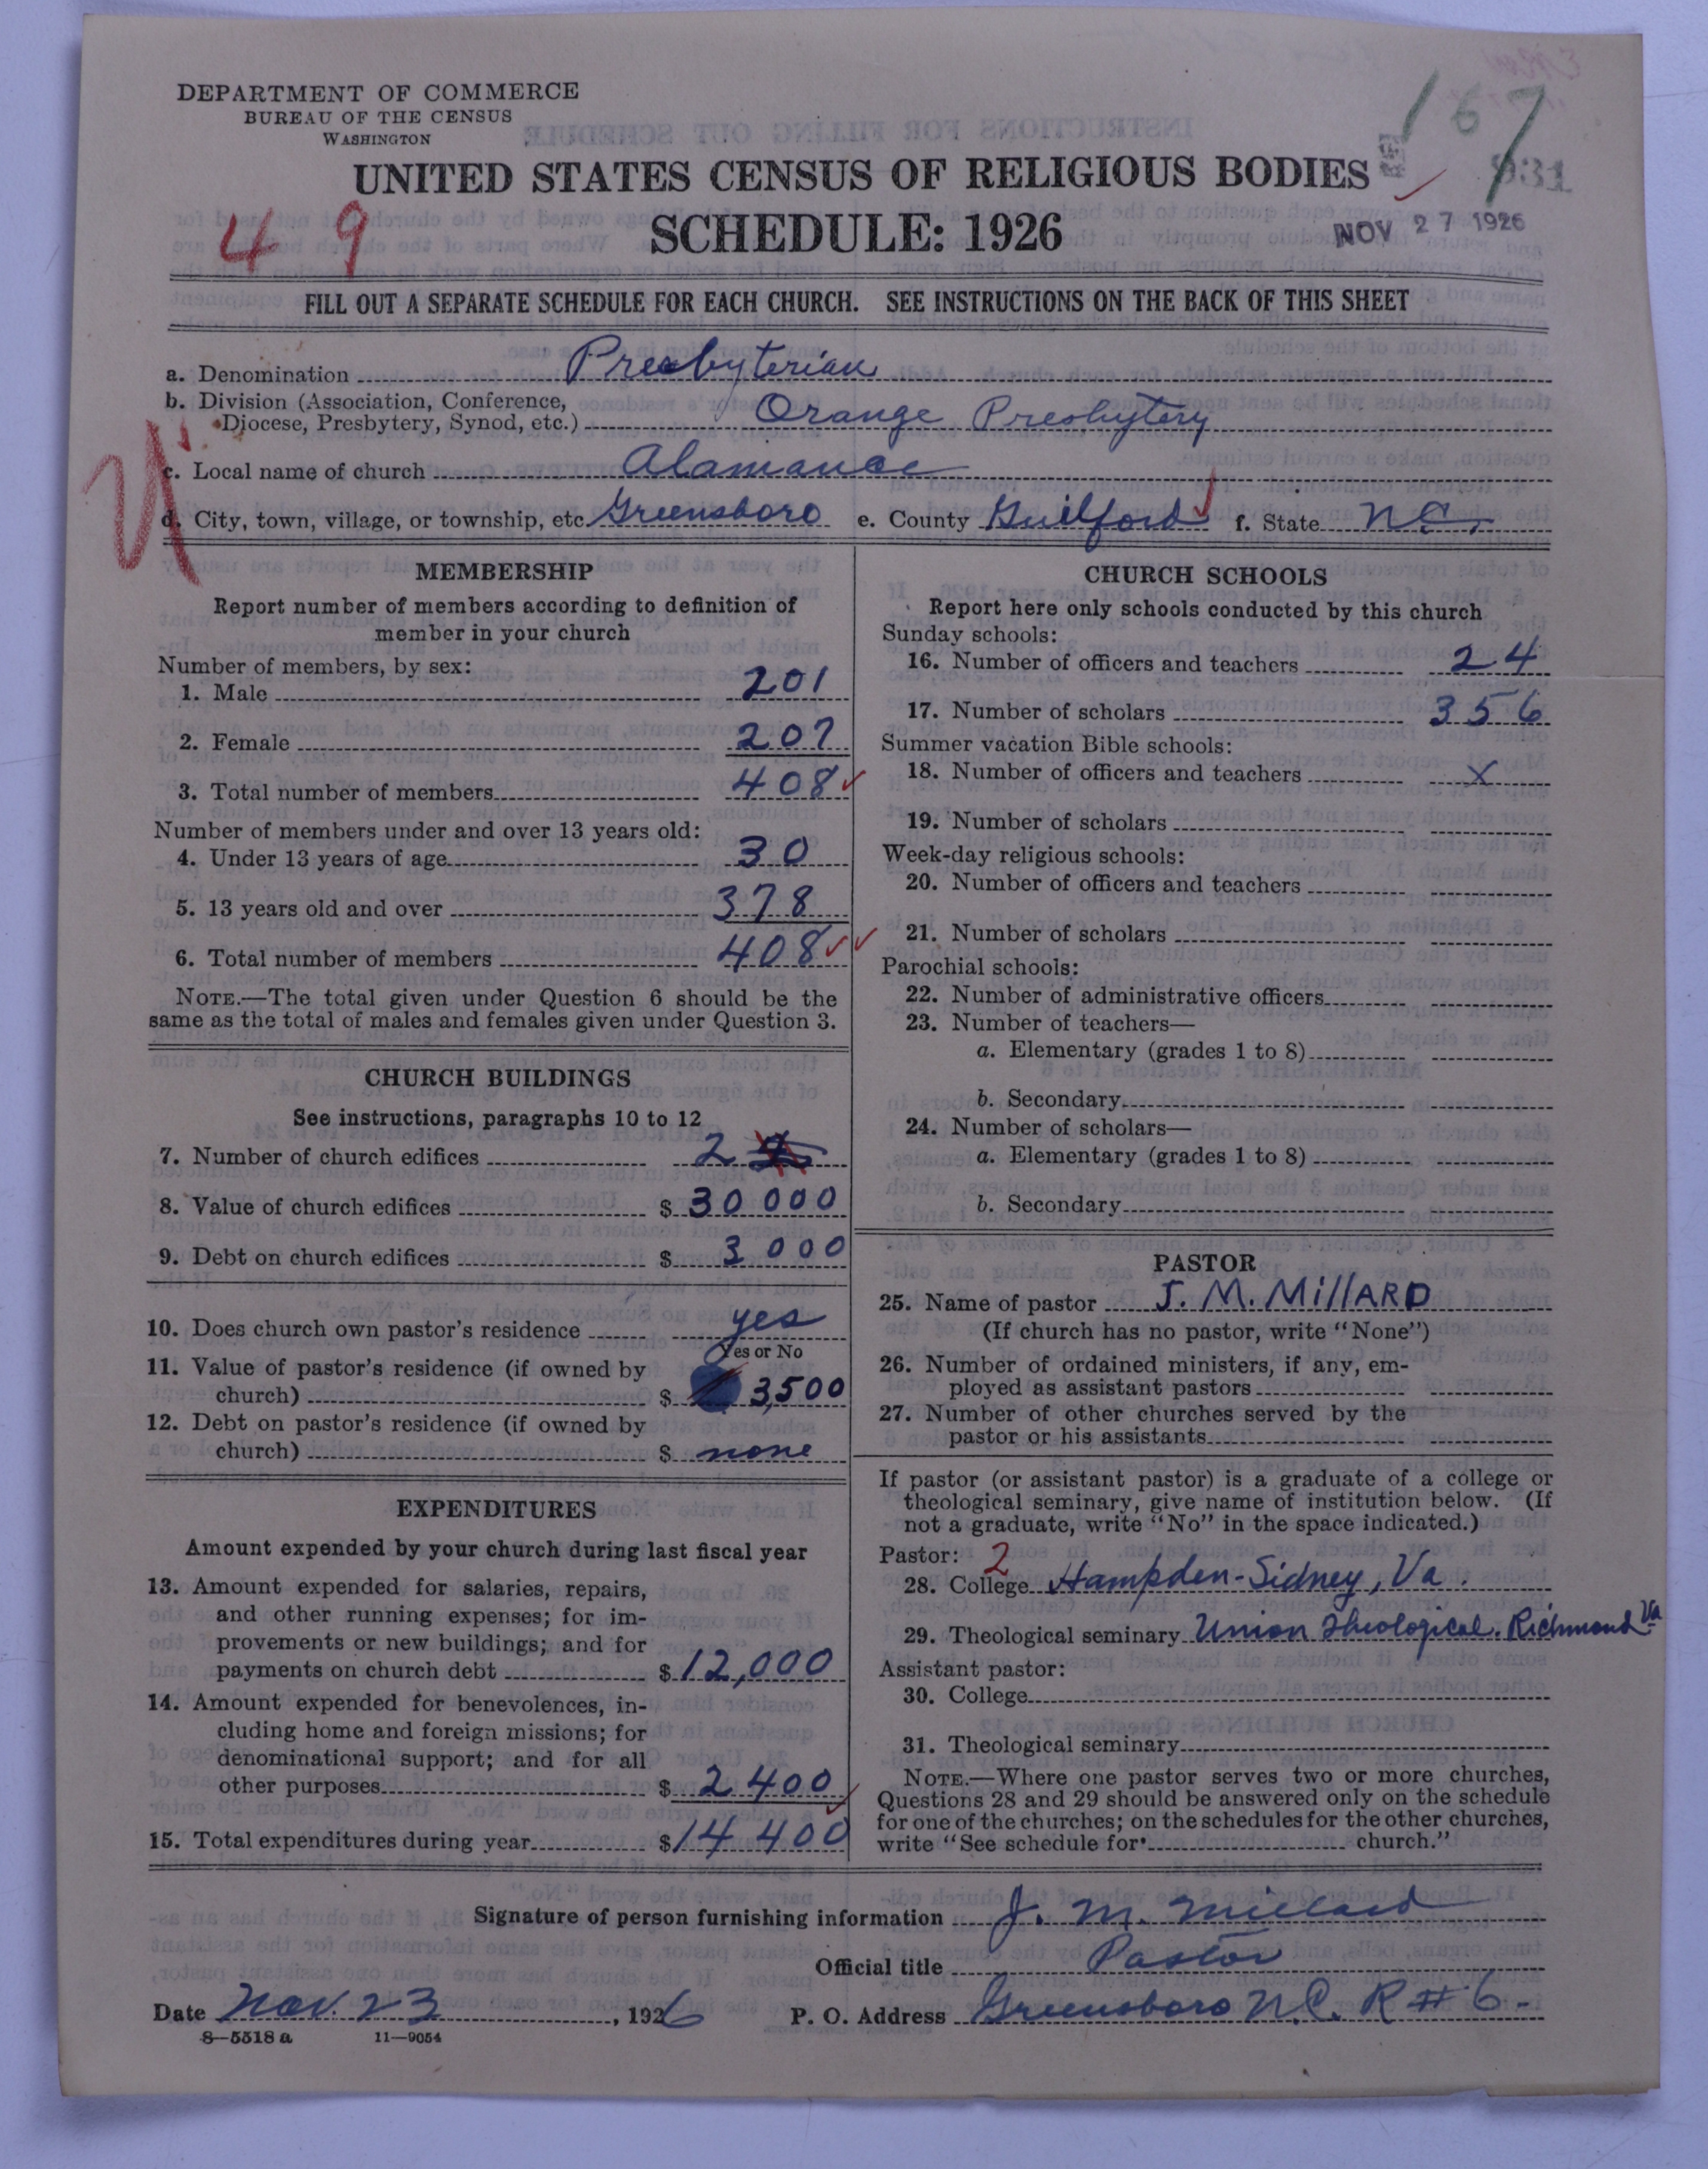 DEPARTMENT OF COMMERCE
BUREAU OF THE CENSUS
WASHINGTON
167
931
UNITED STATES CENSUS OF RELIGIOUS BODIES
SCHEDULE: 1926
NOV 27 1926
49
FILL OUT A SEPARATE SCHEDULE FOR EACH CHURCH. SEE INSTRUCTIONS ON THE BACK OF THIS SHEET
a. Denomination Presbyterian
b. Division (Association, Conference,
Diocese, Presbytery, Synod, etc.) Orange Presbytery
c. Local name of church Alamance
d. City, town, village, or township, etc. Greensboro e. County Guilford f. State N.C.
MEMBERSHIP
Report number of members according to definition of
member in your church
Number of members, by sex:
1. Male 201
2. Female 207
3. Total number of members 408
Number of members under and over 13 years old:
4. Under 13 years of age 30
5. 13 years old and over 378
6. Total number of members 408
NOTE.—The total given under Question 6 should be the
same as the total of males and females given under Question 3.
CHURCH BUILDINGS
See instructions, paragraphs 10 to 12
7. Number of church edifices 2
8. Value of church edifices $ 30 000
9. Debt on church edifices $ 3 000
10. Does church own pastor's residence yes
Yes or No
11. Value of pastor's residence (if owned by
church) $ 3,500
12. Debt on pastor's residence (if owned by
church) $ none
EXPENDITURES
Amount expended by your church during last fiscal year
13. Amount expended for salaries, repairs,
and other running expenses; for im-
provements or new buildings; and for
payments on church debt $ 12,000
14. Amount expended for benevolences, in-
cluding home and foreign missions; for
denominational support; and for all
other purposes $ 2400
15. Total expenditures during year $ 14 400
CHURCH SCHOOLS
Report here only schools conducted by this church
Sunday schools:
16. Number of officers and teachers 24
17. Number of scholars 356
Summer vacation Bible schools:
18. Number of officers and teachers x
19. Number of scholars
Week-day religious schools:
20. Number of officers and teachers
21. Number of scholars
Parochial schools:
22. Number of administrative officers
23. Number of teachers—
a. Elementary (grades 1 to 8)
b. Secondary
24. Number of scholars—
a. Elementary (grades 1 to 8)
b. Secondary
PASTOR
25. Name of pastor J. M. MillARD
(If church has no pastor, write "None")
26. Number of ordained ministers, if any, em-
ployed as assistant pastors
27. Number of other churches served by the
pastor or his assistants
If pastor (or assistant pastor) is a graduate of a college or
theological seminary, give name of institution below. (If
not a graduate, write "No" in the space indicated.)
Pastor: 2
28. College Hampden-Sidney, Va.
29. Theological seminary Union Theological. Richmond Va
Assistant pastor:
30. College
31. Theological seminary
NOTE.—Where one pastor serves two or more churches,
Questions 28 and 29 should be answered only on the schedule
for one of the churches; on the schedules for the other churches,
write "See schedule for church."
Signature of person furnishing information J. M. Millard
Official title Pastor
Date Nov. 23, 1926 P. O. Address Greensboro N.C. R # 6.
8—5518 a 11—9054